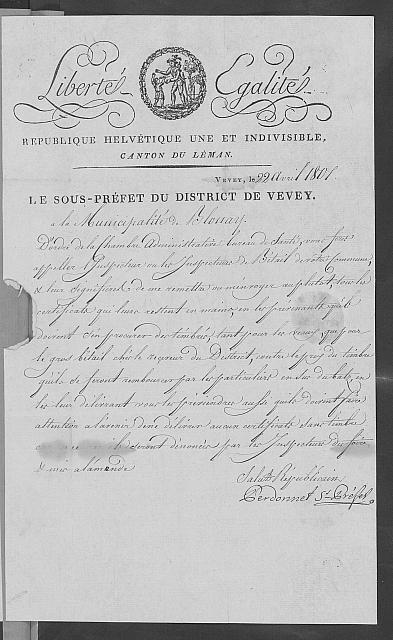 Liberté Egalité
REPUBLIQUE HELVÉTIQUE UNE ET INDIVISIBLE,
CANTON DU LÉMAN.
VEVEY, le 22 Avril 1801
LE SOUS-PRÉFET DU DISTRICT DE VEVEY.
a la Municipalité de
D'ordre de la Chambre Administrative bureau de Santé, vous ferez
appeller l'Inspecteur ou les Inspecteurs de Bétail de votre Commune,
& leur signifierez de me remettre ou m'envoyer au plutot, tous les
certificats qui leurs restent en mains, en les prévenants qu'ils
doivent s'en procurer des timbrés, tant pour les que pour
le gros bétail chez le receveur du District, contre le prix du timbre
qu'ils se feront rembourcer par les particuliers en sus du batz en
les leur délivrant vous les préviendrez aussi qu'ils doivent faire
attention à l'avenir de ne délivrer aucun certificats sans timbre
ils seront dénoncés par les Inspecteurs des foires
& mis a l'amande
Salut Républicain
Perdonnet S. Préfet.